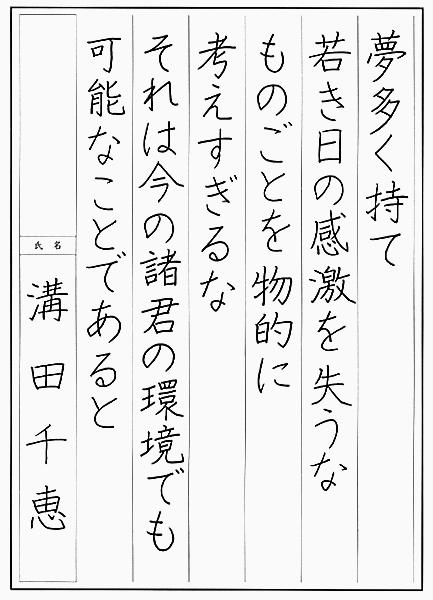 夢多く持て
若き日の感激を失うな
ものごとを物的に
考えすぎるな
それは今の諸君の環境でも
可能なことであると
氏名
溝田千恵